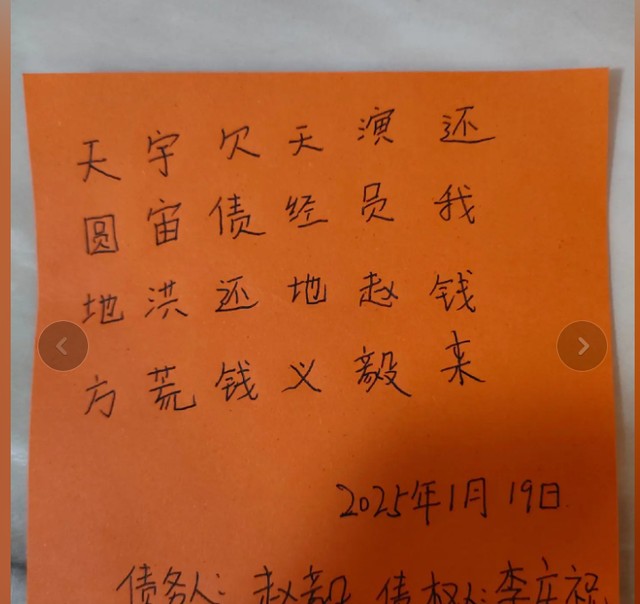 天圆地方
宇宙洪荒
欠债还钱
天经地义
演员赵毅
还我钱来
2025年1月19日
债务人：赵毅 债权人：李